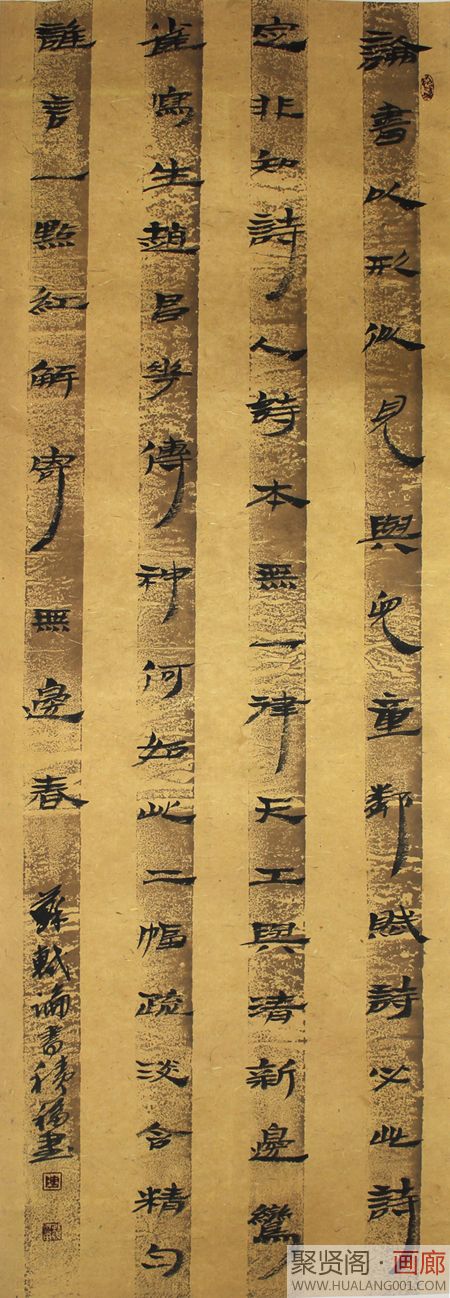 論書以形似見與兒童鄰賦詩必此詩
定非知詩人詩本無一律天工與清新邊鸞
雀寫生趙昌花傳神何如此二幅疏淡含精勻
誰言一點紅解寄無邊春
蘇軾論書
聚贤阁·画廊
WWW.HUALANG001.COM